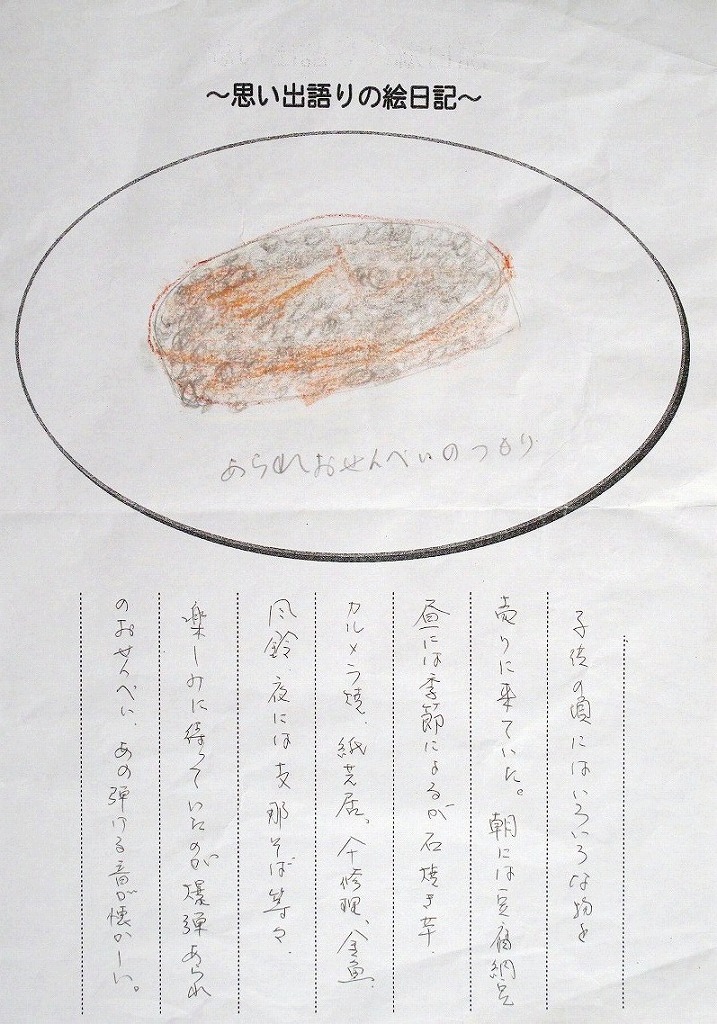 ～思い出語りの絵日記～
あられおせんべいのつもり
子供の頃にはいろいろな物を
売りに来ていた。朝には豆腐納豆
昼には季節によるが石焼き芋、
カルメラ焼、紙芝居、修理、金魚、
風鈴、夜には支那そば等々、
楽しみに待っていたのが爆弾あられ
のおせんべい、あの弾ける音が懐かしい。